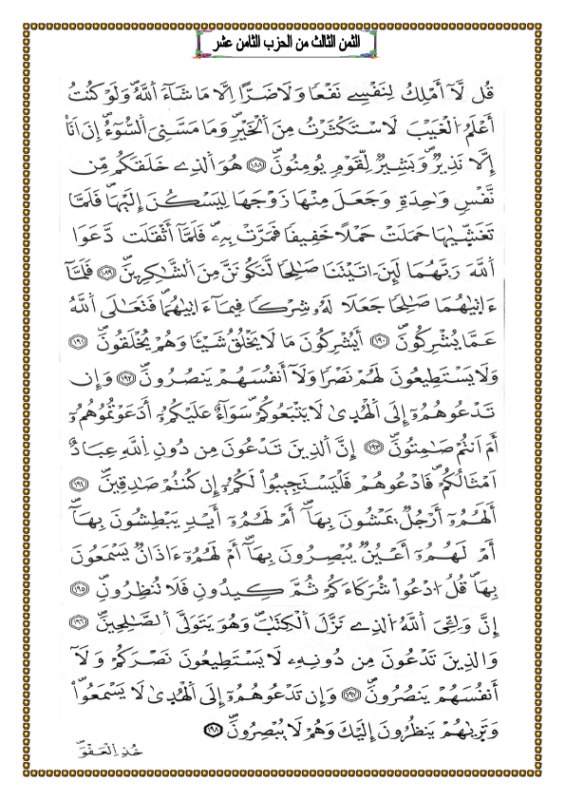 الثمن الثالث من الحزب الثامن عشر
قُل لَّآ أَمْلِكُ لِنَفْسِے نَفْعاٗ وَلَا ضَرّاً اِلَّا مَا شَآءَ اَللَّهُۖ وَلَوْ كُنتُ
أَعْلَمُ اُلْغَيْبَ لَاسْتَكْثَرْتُ مِنَ اَلْخَيْرِۖ وَمَا مَسَّنِيَ اَلسُّوٓءُۖ إِنَ اَنَا۠
إِلَّا نَذِيرٞ وَبَشِيرٞ لِّقَوْمٖ يُومِنُونَۖ ١٨٨ هُوَ اَلذِے خَلَقَكُم مِّن
نَّفْسٖ وَٰحِدَةٖ وَجَعَلَ مِنْهَا زَوْجَهَا لِيَسْكُنَ إِلَيْهَاۖ فَلَمَّا
تَغَشّ۪يٰهَا حَمَلَتْ حَمْلاً خَفِيفاٗ فَمَرَّتْ بِهِۦۖ فَلَمَّآ أَثْقَلَت دَّعَوَا
اَللَّهَ رَبَّهُمَا لَئِنَ اٰتَيْتَنَا صَٰلِحاٗ لَّنَكُونَنَّ مِنَ اَلشَّٰكِرِينَۖ ١٨٩ فَلَمَّآ
ءَات۪يٰهُمَا صَٰلِحاٗ جَعَلَا لَهُۥ شِرْكاٗ فِيمَآ ءَات۪يٰهُمَاۖ فَتَعَٰلَى اَللَّهُ
عَمَّا يُشْرِكُونَۖ ١٩٠ أَيُشْرِكُونَ مَا لَا يَخْلُقُ شَيْـٔاٗ وَهُمْ يُخْلَقُونَۖ ١٩١
وَلَا يَسْتَطِيعُونَ لَهُمْ نَصْراٗ وَلَآ أَنفُسَهُمْ يَنصُرُونَۖ ١٩٢ وَإِن
تَدْعُوهُمُۥٓ إِلَى اَلْهُد۪يٰ لَا يَتْبَعُوكُمْۖ سَوَآءٌ عَلَيْكُمُۥٓ أَدَعَوْتُمُوهُمُۥٓ
أَمَ اَنتُمْ صَٰمِتُونَۖ ١٩٣ إِنَّ اَلذِينَ تَدْعُونَ مِن دُونِ اِللَّهِ عِبَادٌ
اَمْثَالُكُمْۖ فَادْعُوهُمْ فَلْيَسْتَجِيبُواْ لَكُمُۥٓ إِن كُنتُمْ صَٰدِقِينَۖ ١٩٤
أَلَهُمُۥٓ أَرْجُلٞ يَمْشُونَ بِهَآۖ أَمْ لَهُمُۥٓ أَيْدٖ يَبْطِشُونَ بِهَآۖ
أَمْ لَهُمُۥٓ أَعْيُنٞ يُبْصِرُونَ بِهَآۖ أَمْ لَهُمُۥٓ ءَاذَانٞ يَسْمَعُونَ
بِهَاۖ قُلُ اُدْعُواْ شُرَكَآءَكُمْ ثُمَّ كِيدُونِ فَلَا تُنظِرُونِۖ ١٩٥
إِنَّ وَلِـِّۧيَ اَللَّهُ اُلذِے نَزَّلَ اَلْكِتَٰبَۖ وَهُوَ يَتَوَلَّى اَلصَّٰلِحِينَۖ ١٩٦
وَالذِينَ تَدْعُونَ مِن دُونِهِۦ لَا يَسْتَطِيعُونَ نَصْرَكُمْ وَلَآ
أَنفُسَهُمْ يَنصُرُونَۖ ١٩٧ وَإِن تَدْعُوهُمُۥٓ إِلَى اَلْهُد۪يٰ لَا يَسْمَعُواْۖ
وَتَر۪يٰهُمْ يَنظُرُونَ إِلَيْكَ وَهُمْ لَا يُبْصِرُونَۖ ١٩٨
خُذِ اِلْعَفْوَ